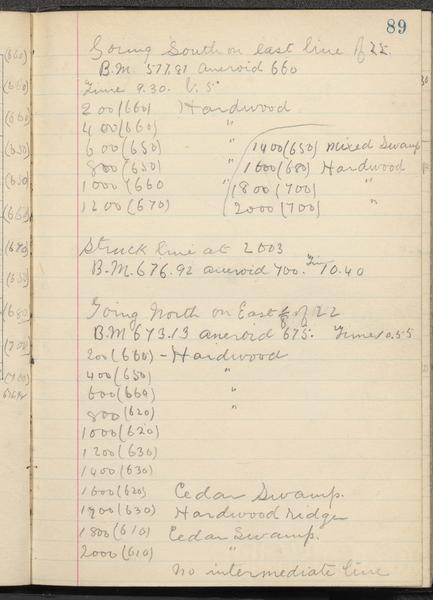 89
Going South on east line of 22
B.M. 577.81 aneroid 660
Time 9.30.
200 (660) Hardwood
400 (660) "
600 (650) "
800 (650) "
1000 (660 "
1200 (670)
1400 (650) Mixed Swamp
1600 (680) Hardwood
1800 (700) "
2000 (700) "
Struck line at 2003
B.M. 676.92 aneroid 700. Time 10.40
Going North on East of 22
B.M 673.13 aneroid 675. Time 10.55
200 (660) - Hardwood
400 (650) "
600 (660) "
800 (620) "
1000 (620)
1200 (630)
1400 (630)
1600 (620) Cedar Swamp.
1700 (630) Hardwood ridge
1800 (610) Cedar Swamp.
2000 (610) "
No intermediate line
(660)
(660)
(660)
(650)
(650)
(660)
(670)
(650)
(680)
(700)
(700)